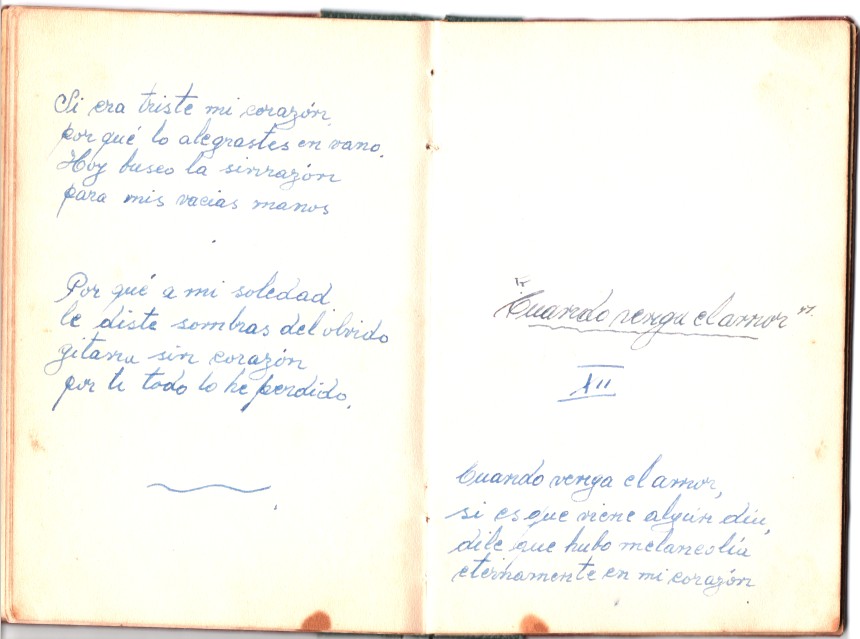 Si era triste mi corazón,
por qué lo alegrastes en vano.
Hoy busco la sinrazón
para mis vacias manos
Por qué a mi soledad
le diste sombras del olvido
gitana sin corazón
por ti todo lo he perdido.
"Cuando venga el amor"
XII
Cuando venga el amor,
si es que viene algún día,
dile que hubo melancolía
eternamente en mi corazón